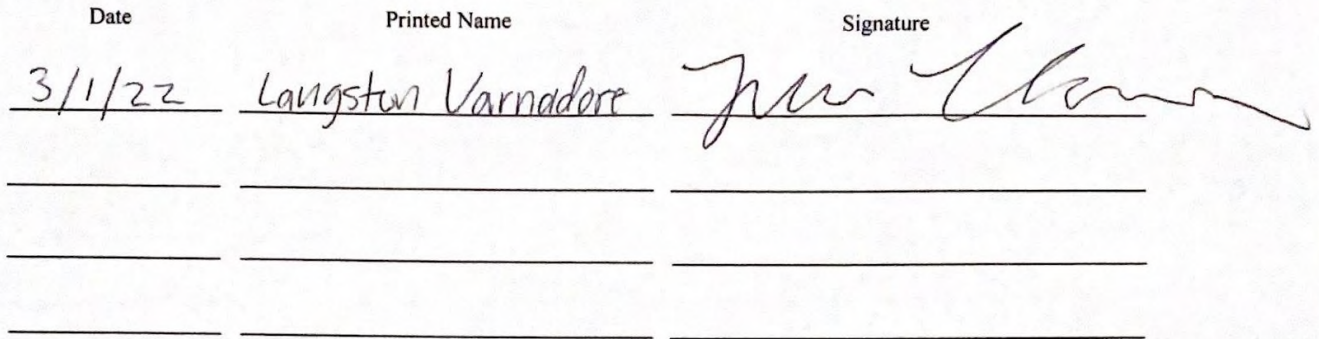 Date Printed Name Signature
3/1/22 Langston Varnadore